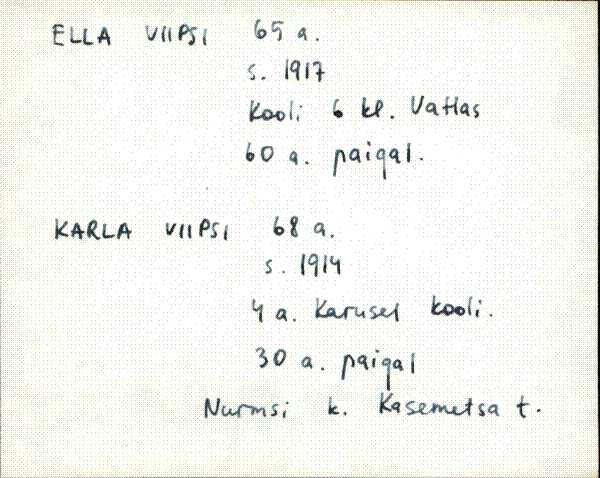 ELLA VIIPSI 65 a.
s. 1917
Kooli 6 kl. Vatlas
60 a. paigal.
KARLA VIIPSI 68 a.
s. 1914
4 a. Karusel kooli.
30 a. paigal
Nurmsi k. Kasemetsa t.